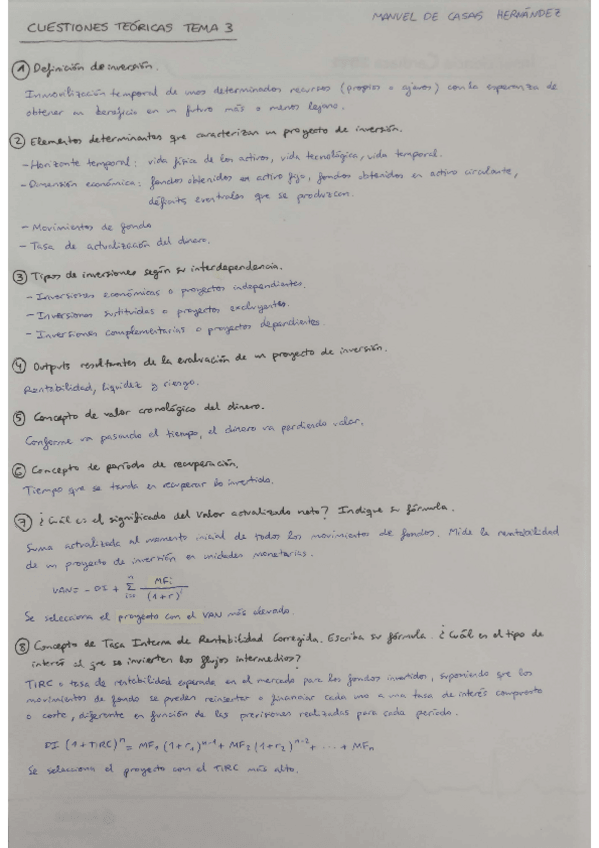 MANUEL DE CASAS HERNÁNDEZ
CUESTIONES TEÓRICAS TEMA 3
① Definición de inversión.
Inmovilización temporal de unos determinados recursos (propios o ajenos) con la esperanza de
obtener un beneficio en un futuro más o menos lejano.
② Elementos determinantes que caracterizan un proyecto de inversión.
- Horizonte temporal: vida física de los activos, vida tecnológica, vida temporal.
- Dimensión económica: fondos obtenidos en activo fijo, fondos obtenidos en activo circulante,
déficits eventuales que se produzcan.
- Movimientos de fondo
- Tasa de actualización del dinero.
③ Tipos de inversiones según su interdependencia.
- Inversiones económicas o proyectos independientes.
- Inversiones sustituidas o proyectos excluyentes.
- Inversiones complementarias o proyectos dependientes.
④ Outputs resultantes de la evaluación de un proyecto de inversión.
Rentabilidad, liquidez y riesgo.
⑤ Concepto de valor cronológico del dinero.
Conforme va pasando el tiempo, el dinero va perdiendo valor.
⑥ Concepto de período de recuperación.
Tiempo que se tarda en recuperar lo invertido.
⑦ ¿Cuál es el significado del Valor actualizado neto? Indique su fórmula.
Suma actualizada al momento inicial de todos los movimientos de fondos. Mide la rentabilidad
de un proyecto de inversión en unidades monetarias.
VAN = - DI + Σ MFi / (1+r)^i
Se selecciona el proyecto con el VAN más elevado.
⑧ Concepto de Tasa Interna de Rentabilidad Corregida. Escriba su fórmula. ¿Cuál es el tipo de
interés al que se invierten los flujos intermedios?
TIRC o tasa de rentabilidad esperada en el mercado para los fondos invertidos, suponiendo que los
movimientos de fondo se pueden reinsertar o financiar cada uno a una tasa de interés compuesto
o coste, diferente en función de las previsiones realizadas para cada período.
DI (1+TIRC)^n = MF1 (1+r1)^n-1 + MF2 (1+r2)^n-2 + ... + MFn
Se selecciona el proyecto con el TIRC más alto.